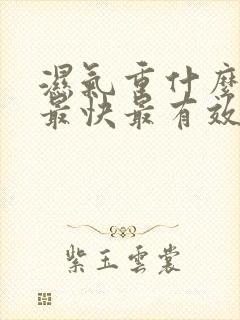 濕氣重什麼
最快最有效
紫玉雲裳